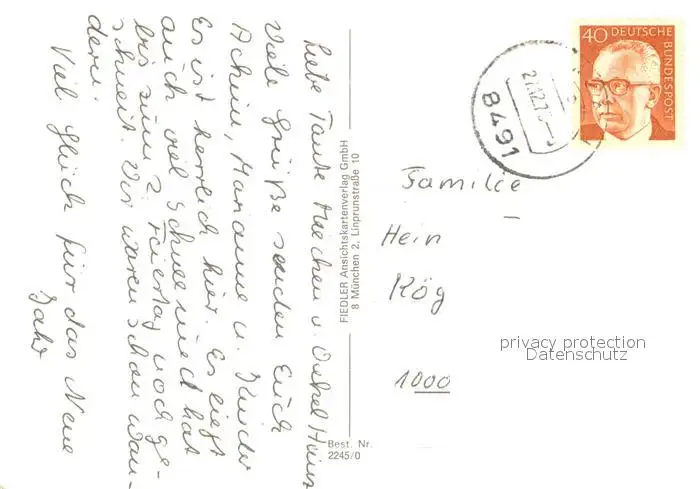 Liebe Tante Miechen u. Onkel Heinz
Viele Grüße senden Euch
Achim, Marianne u. Kinder
Es ist herrlich hier. Es liegt
auch viel Schnee und hat
bis zum 2. Feiertag noch ge-
schneit. Wir waren schon wan-
dern.
Viel Glück für das Neue
Jahr
FIEDLER Ansichtskartenverlag GmbH
8 München 2, Linprunstraße 10
Best. Nr.
2245/0
40 DEUTSCHE
BUNDESPOST
8491
Familie
Hein
Kög
1000
privacy protection
Datenschutz